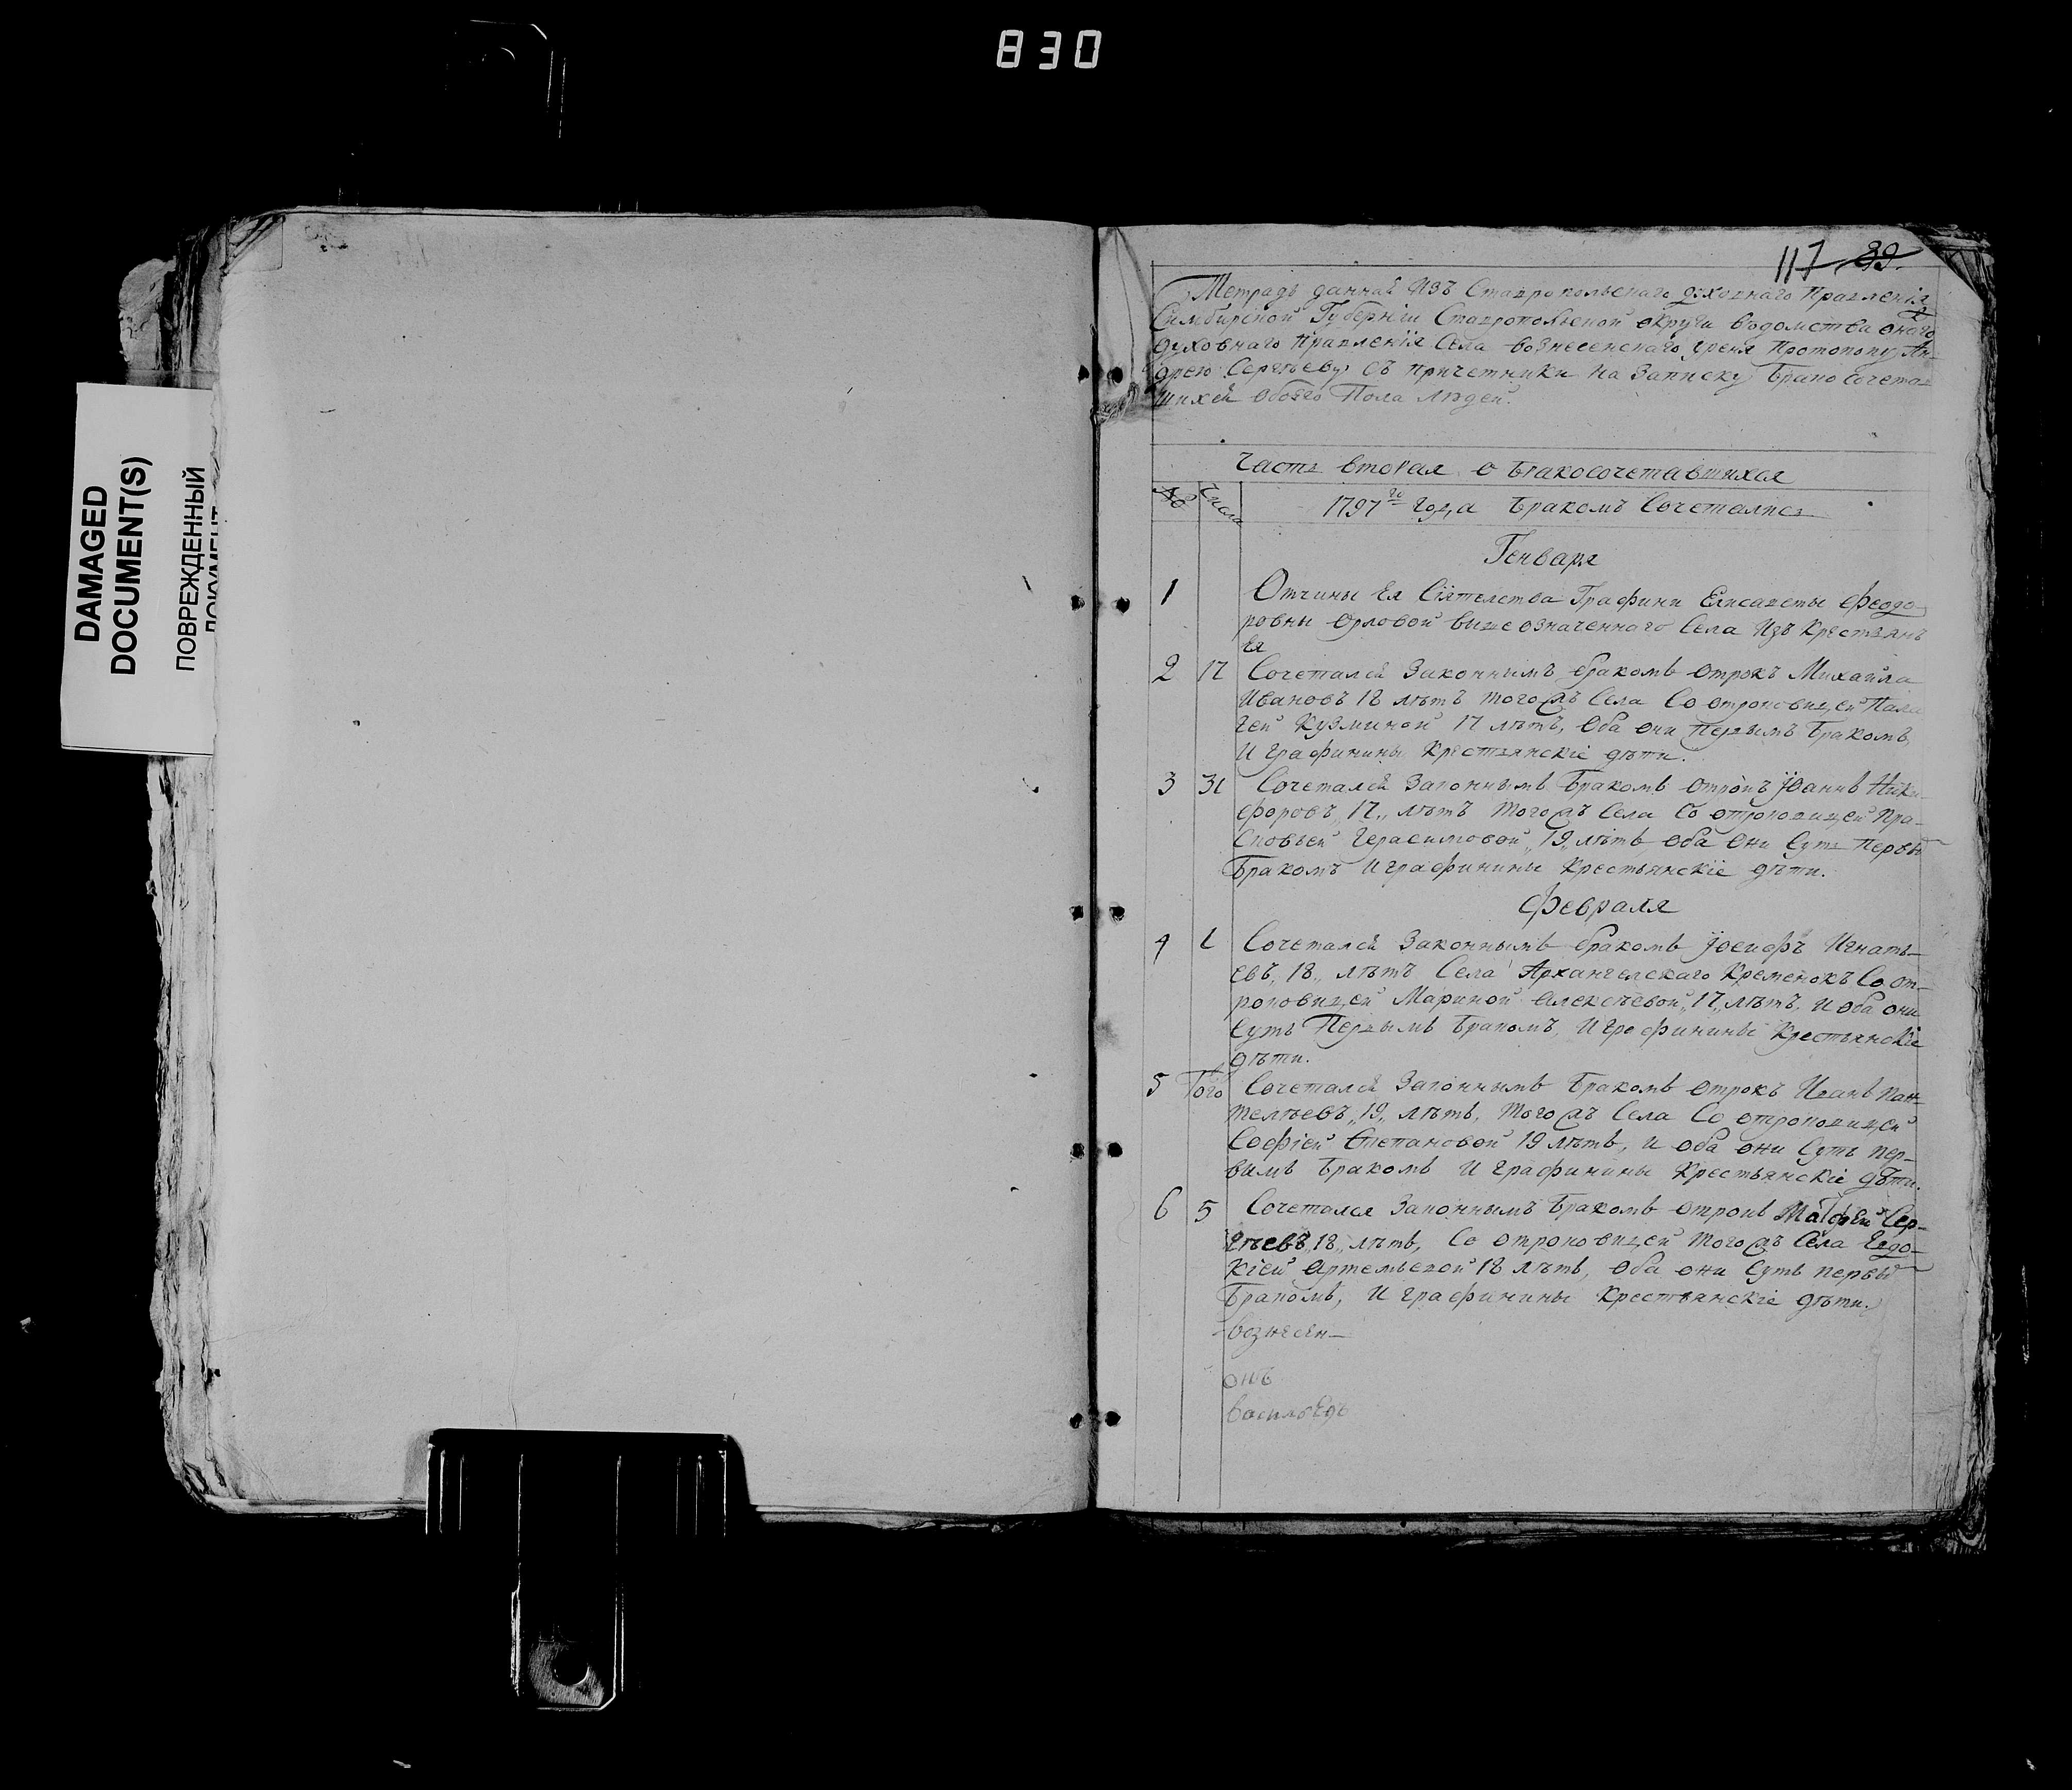 830
DAMAGED
DOCUMENT(S)
ПОВРЕЖДЕННЫЙ
117 39.
Тетрадь данная Изъ Ставропольскаго духовнаго Правленія
Симбирской Губерніи Ставропольской округи ведомства онаго
духовнаго Правленія Села вознесенскаго Протопопу Ан-
дрею Сергѣеву съ причетники на Записку Брако сочетав
шихся обоего Пола людей.
Часть вторая о бракосочетавшихся
№ Числа
1797го года Бракомъ Сочетались
Генваря
1 Отчины Ея Сіятелства Графини Елисаветы Феодо-
ровны Орловой выше означеннаго Села Изъ Крестьянъ
Ея
2 17 Сочетался Законнымъ бракомъ отрокъ Михайла
Ивановъ 18 лѣтъ тогожъ Села Со отроковицей Пала
геи Кузминой 17 лѣтъ, оба они Первымъ Бракомъ,
И графинины Крестьянскіе дѣти.
3 31 Сочетался Законнымъ Бракомъ отрокъ Іоаннъ Ники-
форовъ,, 17,, лѣтъ тогожъ Села Со отроковицей Пра-
сковьей Герасимовой,, 19,, лѣтъ оба Они Суть Первы
Бракомъ И графинины Крестьянскіе дѣти.
Февраля
4 1 Сочетался Законнымъ бракомъ Іосифъ Игнать-
евъ,, 18,, лѣтъ Села Архангелскаго Кременокъ Со от-
роковицей Мариной Алексѣевой,, 17,, лѣтъ, и оба они
Суть Первымъ Бракомъ, И графинины Крестьянскіе
дѣти.
5 Того Сочетался Законнымъ Бракомъ отрокъ Иванъ Пан-
телѣевъ,, 19,, лѣтъ, тогожъ Села Со отроковицей
Софіей Степановой 19 лѣтъ, и оба они Суть пер-
вымъ Бракомъ И графинины Крестьянскіе дѣти.
6 5 Сочетался Законнымъ Бракомъ отрокъ Матфей Сер-
гѣевъ,, 18,, лѣтъ, Со отроковицей тогожъ Села Евдо-
кіей Артемьевой 18 лѣтъ, оба они Суть первы
Бракомъ, И графинины Крестьянскіе дѣти.
вознесен-
онъ
васильевъ